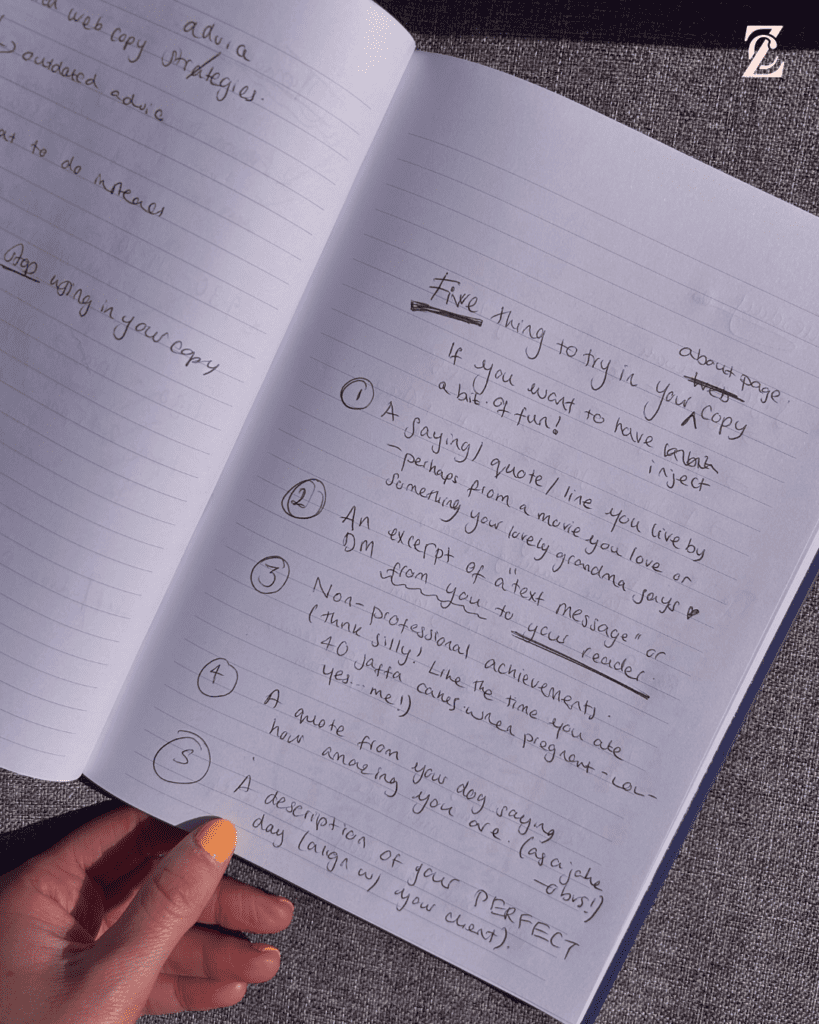 web copy strategies.
advia
outdated advia
at to do instead
Stop using in your copy
Five thing to try in your copy
about page
If you want to have
inject
a bit of fun!
① A saying/quote/line you live by
- perhaps from a movie you love or
something your lovely grandma says ♥
② An excerpt of a "text message" or
DM from you to your reader.
③ Non-professional achievements.
(think silly! Like the time you ate
40 Jaffa cakes when pregnant -LOL-
yes... me!)
④ A quote from your dog saying
how amazing you are. (as a joke
-obvs!)
⑤ A description of your PERFECT
day (align w/ your client).